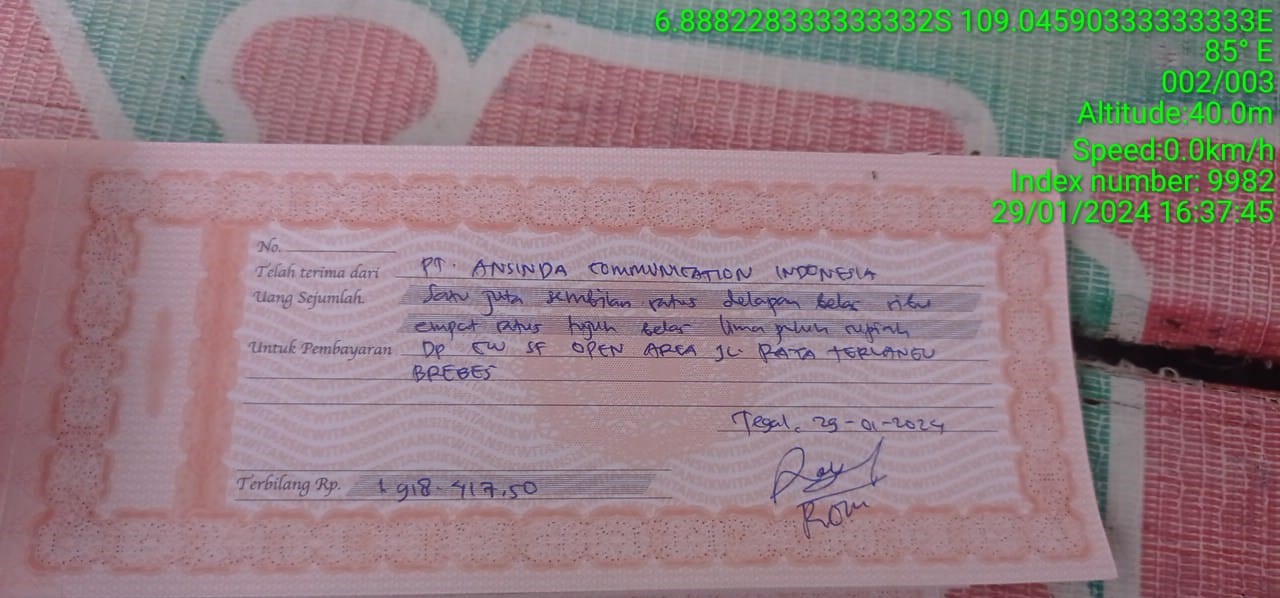 6.888228333333332S 109.04590333333333E
85° E
002/003
Altitude:40.0m
Speed:0.0km/h
Index number: 9982
29/01/2024 16:37:45
No.
Telah terima dari PT. ANSINDA COMMUNICATION INDONESIA
Uang Sejumlah Satu juta sembilan ratus delapan belas ribu
empat ratus tujuh belas lima puluh rupiah
Untuk Pembayaran DP CW SF OPEN AREA JL. RAYA TERLANGU
BREBES
Tegal, 29-01-2024
Terbilang Rp. 1.918.417,50
Rom